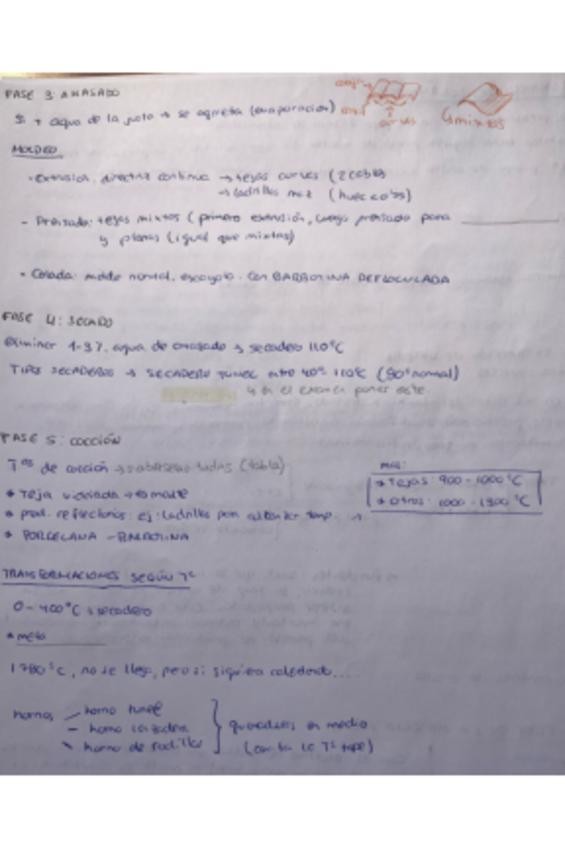 FASE 3: AMASADO
Si + agua de la justa → se agrieta (evaporación)
curvas
mixtas
MOLDEO
- Extrusión. directriz continua → tejas curvas (2 cobijas)
→ ladrillos maz (huecos)
- Prensado: tejas mixtas (primero extrusión, luego prensado para
y planas (igual que mixtas)
- Colada: molde normal, escayola. Con BARBOTINA DEFLOCULADA
FASE 4: SECADO
eliminar 1-3%. agua de amasado → secadero 110°C
TIPOS SECADEROS → SECADERO TUNEL entre 40° 110°C (90° normal)
en el examen poner este.
FASE 5: COCCIÓN
Tas de cocción → saberse todas (tabla)
* Tejas: 900 - 1000°C
* Otros: 1000 - 1300°C
* Teja vidriada → esmalte
* prod. refractarios: ej: ladrillos para aguantar temp.
* PORCELANA - BARBOTINA
TRANSFORMACIONES SEGÚN Tª
0 - 400°C → secadero
* meta
1780°C, no se llega, pero si siguiera calentando...
hornos
horno tunel
- horno
horno de rodillos
quemadores en medio